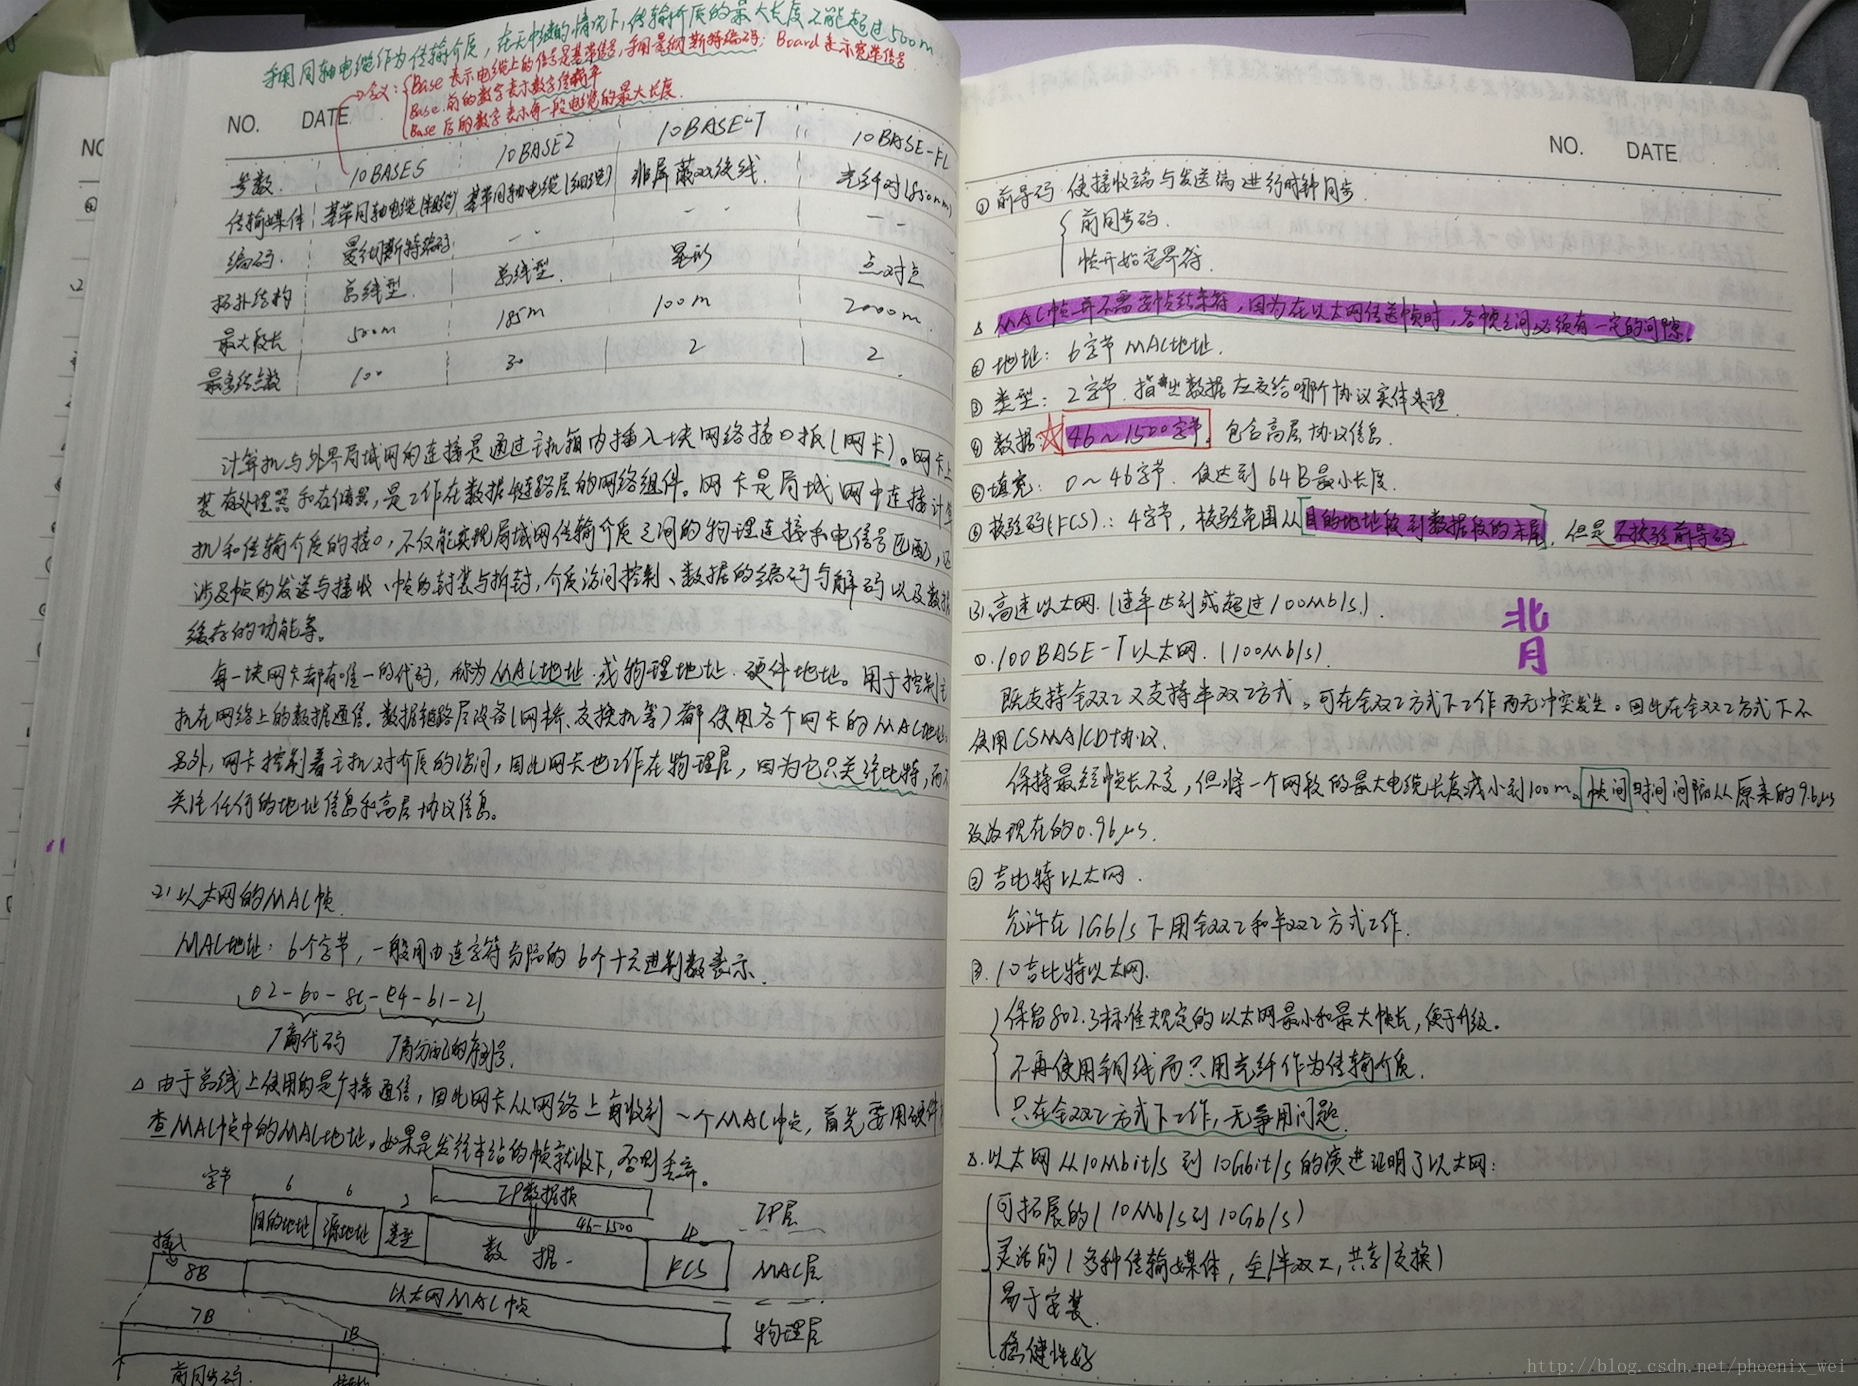 采用同轴电缆作为传输介质，在无中继的情况下，传输介质的最大长度不能超过500m
含义：Base 表示电缆上的信号是基带信号，采用曼彻斯特编码；Board 表示宽带信号
Base 前的数字表示数字传输率
Base 后的数字表示每一段电缆的最大长度
NO. DATE
参数 10BASE5 10BASE2 10BASE-T 10BASE-FL
传输媒体 基带同轴电缆(粗缆) 基带同轴电缆(细缆) 非屏蔽双绞线 光纤对(850nm)
编码 曼彻斯特编码
拓扑结构 总线型 总线型 星形 点对点
最大段长 500m 185m 100m 2000m
最多结点数 100 30 2 2
计算机与外界局域网的连接是通过主机箱内插入一块网络接口板(网卡)。网卡上
装有处理器和存储器，是工作在数据链路层的网络组件。网卡是局域网中连接计算
机和传输介质的接口，不仅能实现局域网传输介质之间的物理连接和电信号匹配，还
涉及帧的发送与接收、帧的封装与拆封，介质访问控制、数据的编码与解码以及数据
缓存的功能等。
每一块网卡都有唯一的代码，称为MAC地址 或物理地址、硬件地址。用于控制主
机在网络上的数据通信。数据链路层设备(网桥、交换机等)都使用各个网卡的MAC地址。
另外，网卡控制着主机对介质的访问，因此网卡也工作在物理层，因为它只关注比特，而不
关注任何的地址信息和高层协议信息。
2) 以太网的MAC帧.
MAC地址：6个字节，一般用由连字符分隔的6个十六进制数表示.
02-60-8c-e4-b1-21
厂商代码 厂商分配的序列号.
△ 由于总线上使用的是广播通信，因此网卡从网络上每收到一个MAC帧，首先要用硬件检
查MAC帧中的MAC地址。如果是发往本站的帧就收下，否则丢弃。
字节 6 6 2 IP数据报 IP层
目的地址 源地址 类型 数据 46-1500 FCS 4 MAC层
插入 8B 以太网MAC帧 物理层
7B 1B
前同步码
NO. DATE
① 前导码 使接收端与发送端进行时钟同步.
前同步码.
帧开始定界符.
△ MAC帧并不需要帧结束符，因为在以太网传送帧时，各帧之间必须有一定的间隙.
② 地址：6字节MAC地址.
③ 类型：2字节. 指出数据应交给哪个协议实体处理.
④ 数据：☆46~1500字节. 包含高层协议信息.
⑤ 填充：0~46字节. 使达到64B最小长度.
⑥ 校验码(FCS)：4字节，校验范围从目的地址段到数据段的末尾，但是不校验前导码
3).高速以太网.(速率达到或超过100Mb/s).
①.100BASE-T以太网.(100Mb/s).
背
既支持全双工又支持半双工方式，可在全双工方式下工作而无冲突发生。因此在全双工方式下不
使用CSMA/CD协议.
保持最短帧长不变，但将一个网段的最大电缆长度减小到100m。帧间时间间隔从原来的9.6μs
改为现在的0.96μs.
② 吉比特以太网.
允许在1Gb/s下用全双工和半双工方式工作.
③.10吉比特以太网.
保留802.3标准规定的以太网最小和最大帧长，便于升级.
不再使用铜线而只用光纤作为传输介质.
只在全双工方式下工作，无争用问题.
△.以太网从10Mbit/s到10Gbit/s的演进证明了以太网：
可拓展的(10Mb/s到10Gb/s)
灵活的(多种传输媒体，全/半双工，共享/交换)
易于安装.
稳健性好
http://blog.csdn.net/phoenix_wei